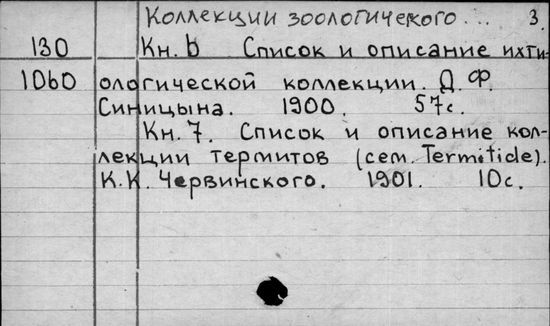 Коллекции зоологического... 3.
130 Кн. 6 Список и описание ихти-
1060 ологической коллекции. Д. Ф.
Синицына. 1900. 57с.
Кн. 7. Список и описание кол-
лекции термитов (сем. Termiticle).
К.К. Червинского. 1901. 10с.